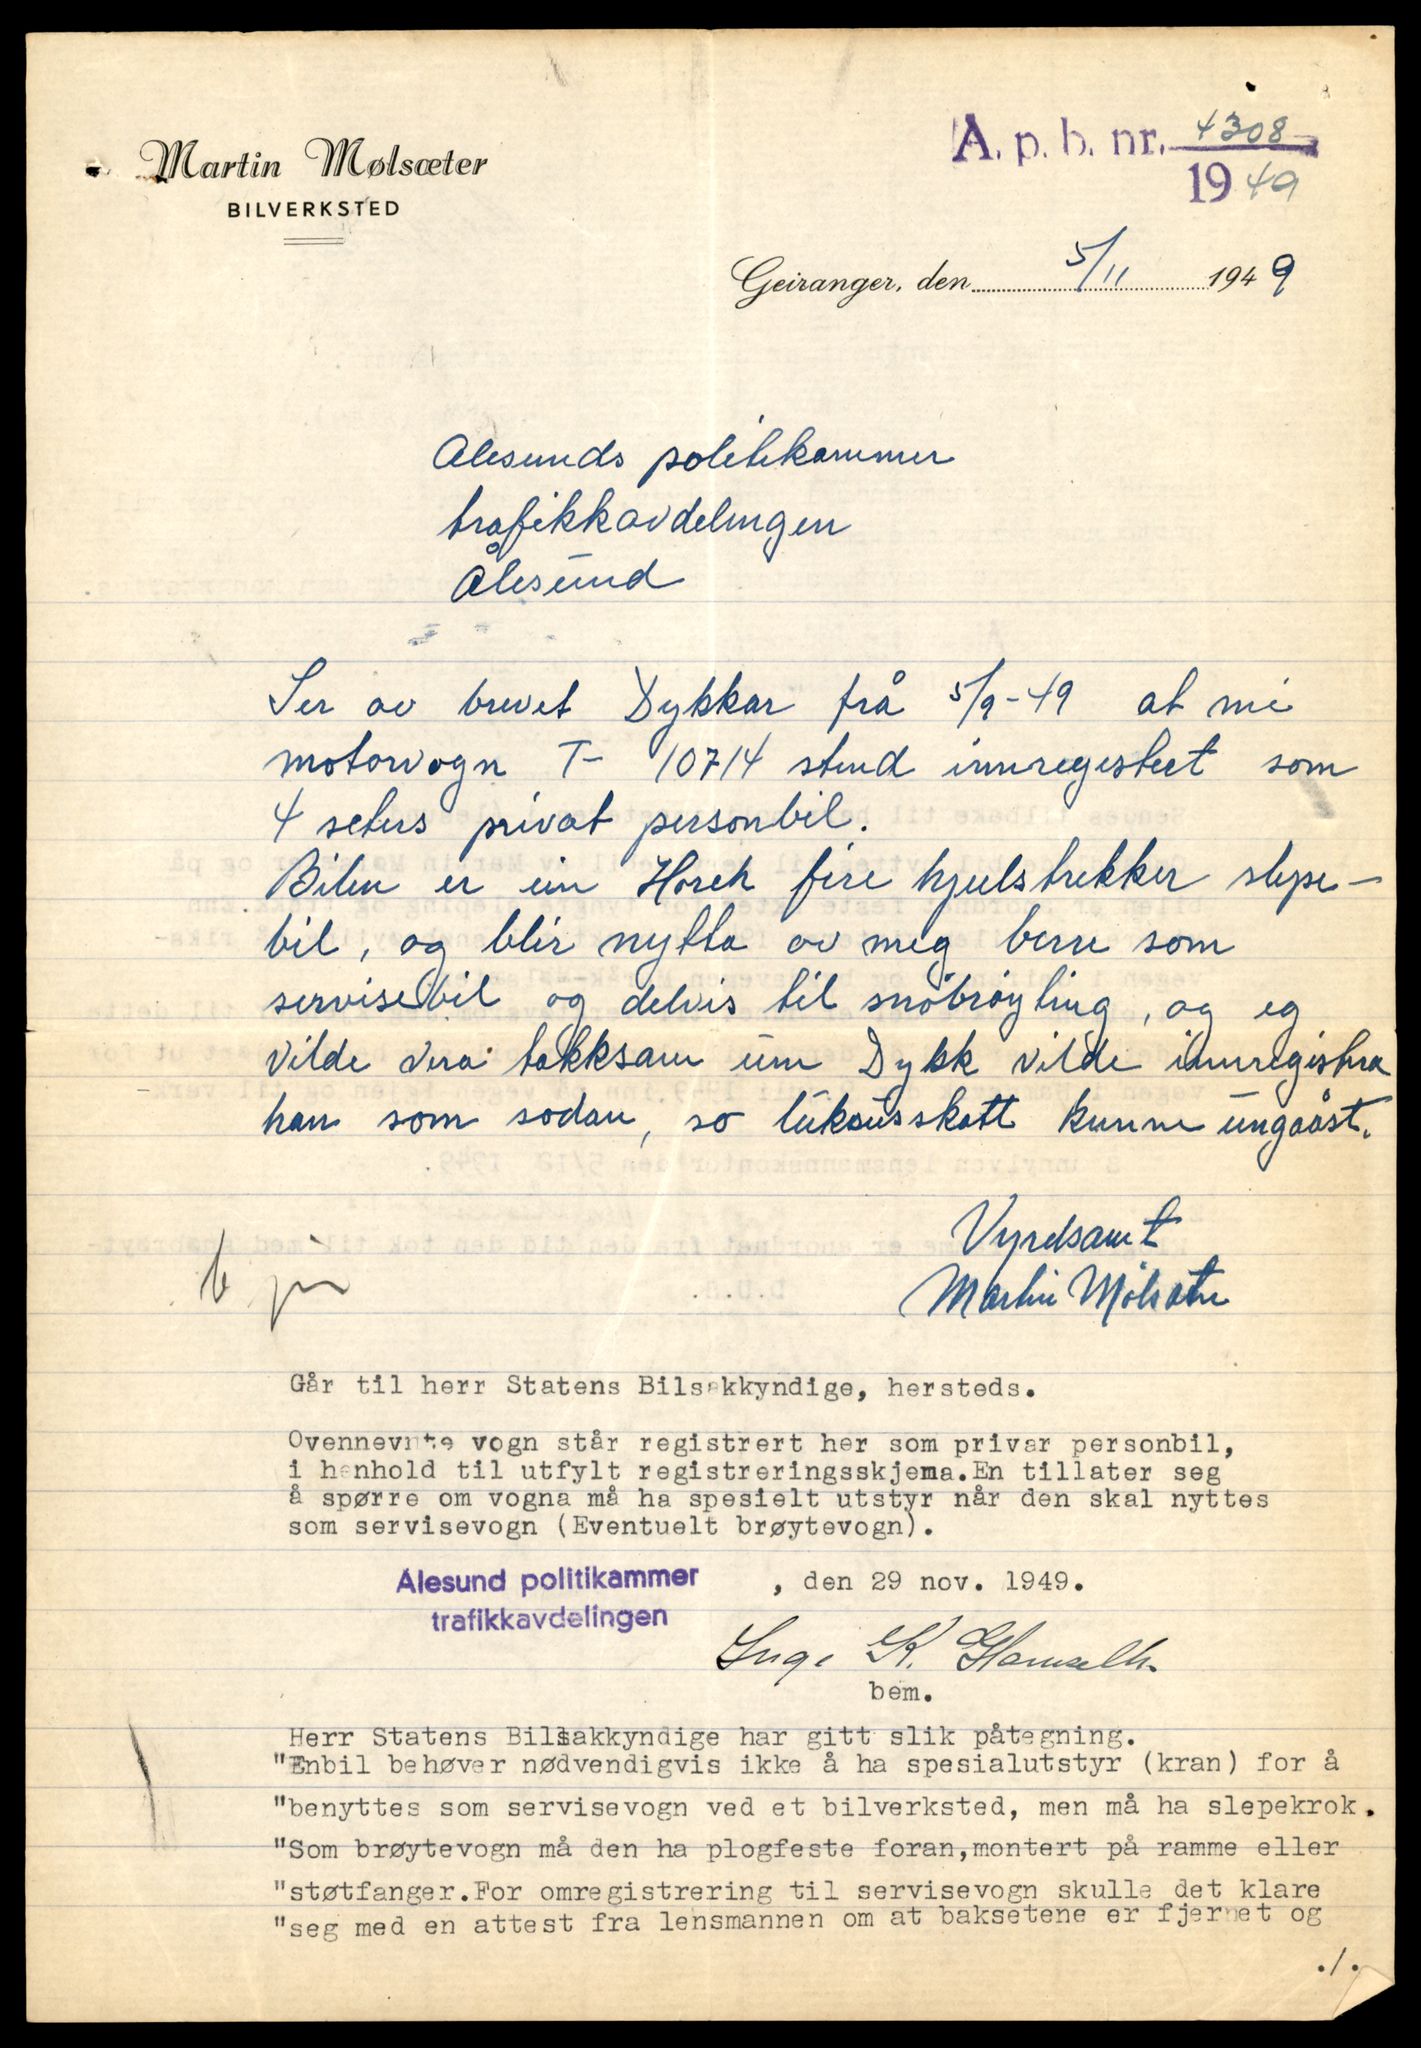 Martin Mølsæter
BILVERKSTED
A. p. b. nr. 4308
1949
Geiranger, den 5/11 1949
Ålesunds politikammer
trafikkavdelingen
Ålesund
Ser av brevet Dykkar frå 5/9-49 at mi
motorvogn T- 10714 stend innregistert som
4 seters privat personbil.
Bilen er ein Horch fire hjulstrekker slepe-
bil, og blir nytta av meg berre som
servisebil og delvis til snöbröyting, og eg
vilde vera takksam um Dykk vilde innregistra
han som sodan, so luksusskatt kunne ungaåst.
Vyrdsamt
Martin Mölsæter
Går til herr Statens Bilsakkyndige, hersteds.
Ovennevnte vogn står registrert her som privar personbil,
i henhold til utfylt registreringsskjema.En tillater seg
å spørre om vogna må ha spesielt utstyr når den skal nyttes
som servisevogn (Eventuelt brøytevogn).
Ålesund politikammer , den 29 nov. 1949.
trafikkavdelingen
Inge K.
bem.
Herr Statens Bilsakkyndige har gitt slik påtegning.
"Enbil behøver nødvendigvis ikke å ha spesialutstyr (kran) for å
"benyttes som servisevogn ved et bilverksted, men må ha slepekrok.
"Som brøytevogn må den ha plogfeste foran,montert på ramme eller
"støtfanger.For omregistrering til servisevogn skulle det klare
"seg med en attest fra lensmannen om at baksetene er fjernet og
./.